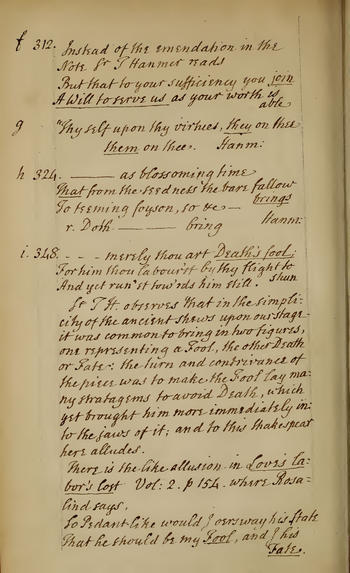 f 312. Instead of the emendation in the
Note Sr T Hanmer reads
But that to your sufficiency you join
A Will to serve us as your worth is
able
g "Thy self upon thy virtues, they on thee
them on thee. Hanm:
h 324. ——— as blossoming time
That from the seedness the bare fallow
brings
To teeming foyson, so &c —
Hanm:
r. Doth ——— bring
i. 348. - - - merely thou art Death's fool;
For him thou labour'st by thy flight to
shun
And yet run'st tow'rds him still.
Sr T H. observes that in the simpli-
city of the ancient shews upon our stage
it was common to bring in two figures,
one representing a Fool, the other Death
or Fate: the turn and contrivance of
the piece was to make the Fool lay ma-
ny stratagems to avoid Death, which
yet brought him more immediately in-
to the jaws of it; and to this Shakespear
here alludes.
There is the like allusion in Loves La-
bor's Lost Vol: 2. p 154. where Rosa-
lind says,
So Pedant like would I oersway his State
That he should be my Fool, and I his
Fate.